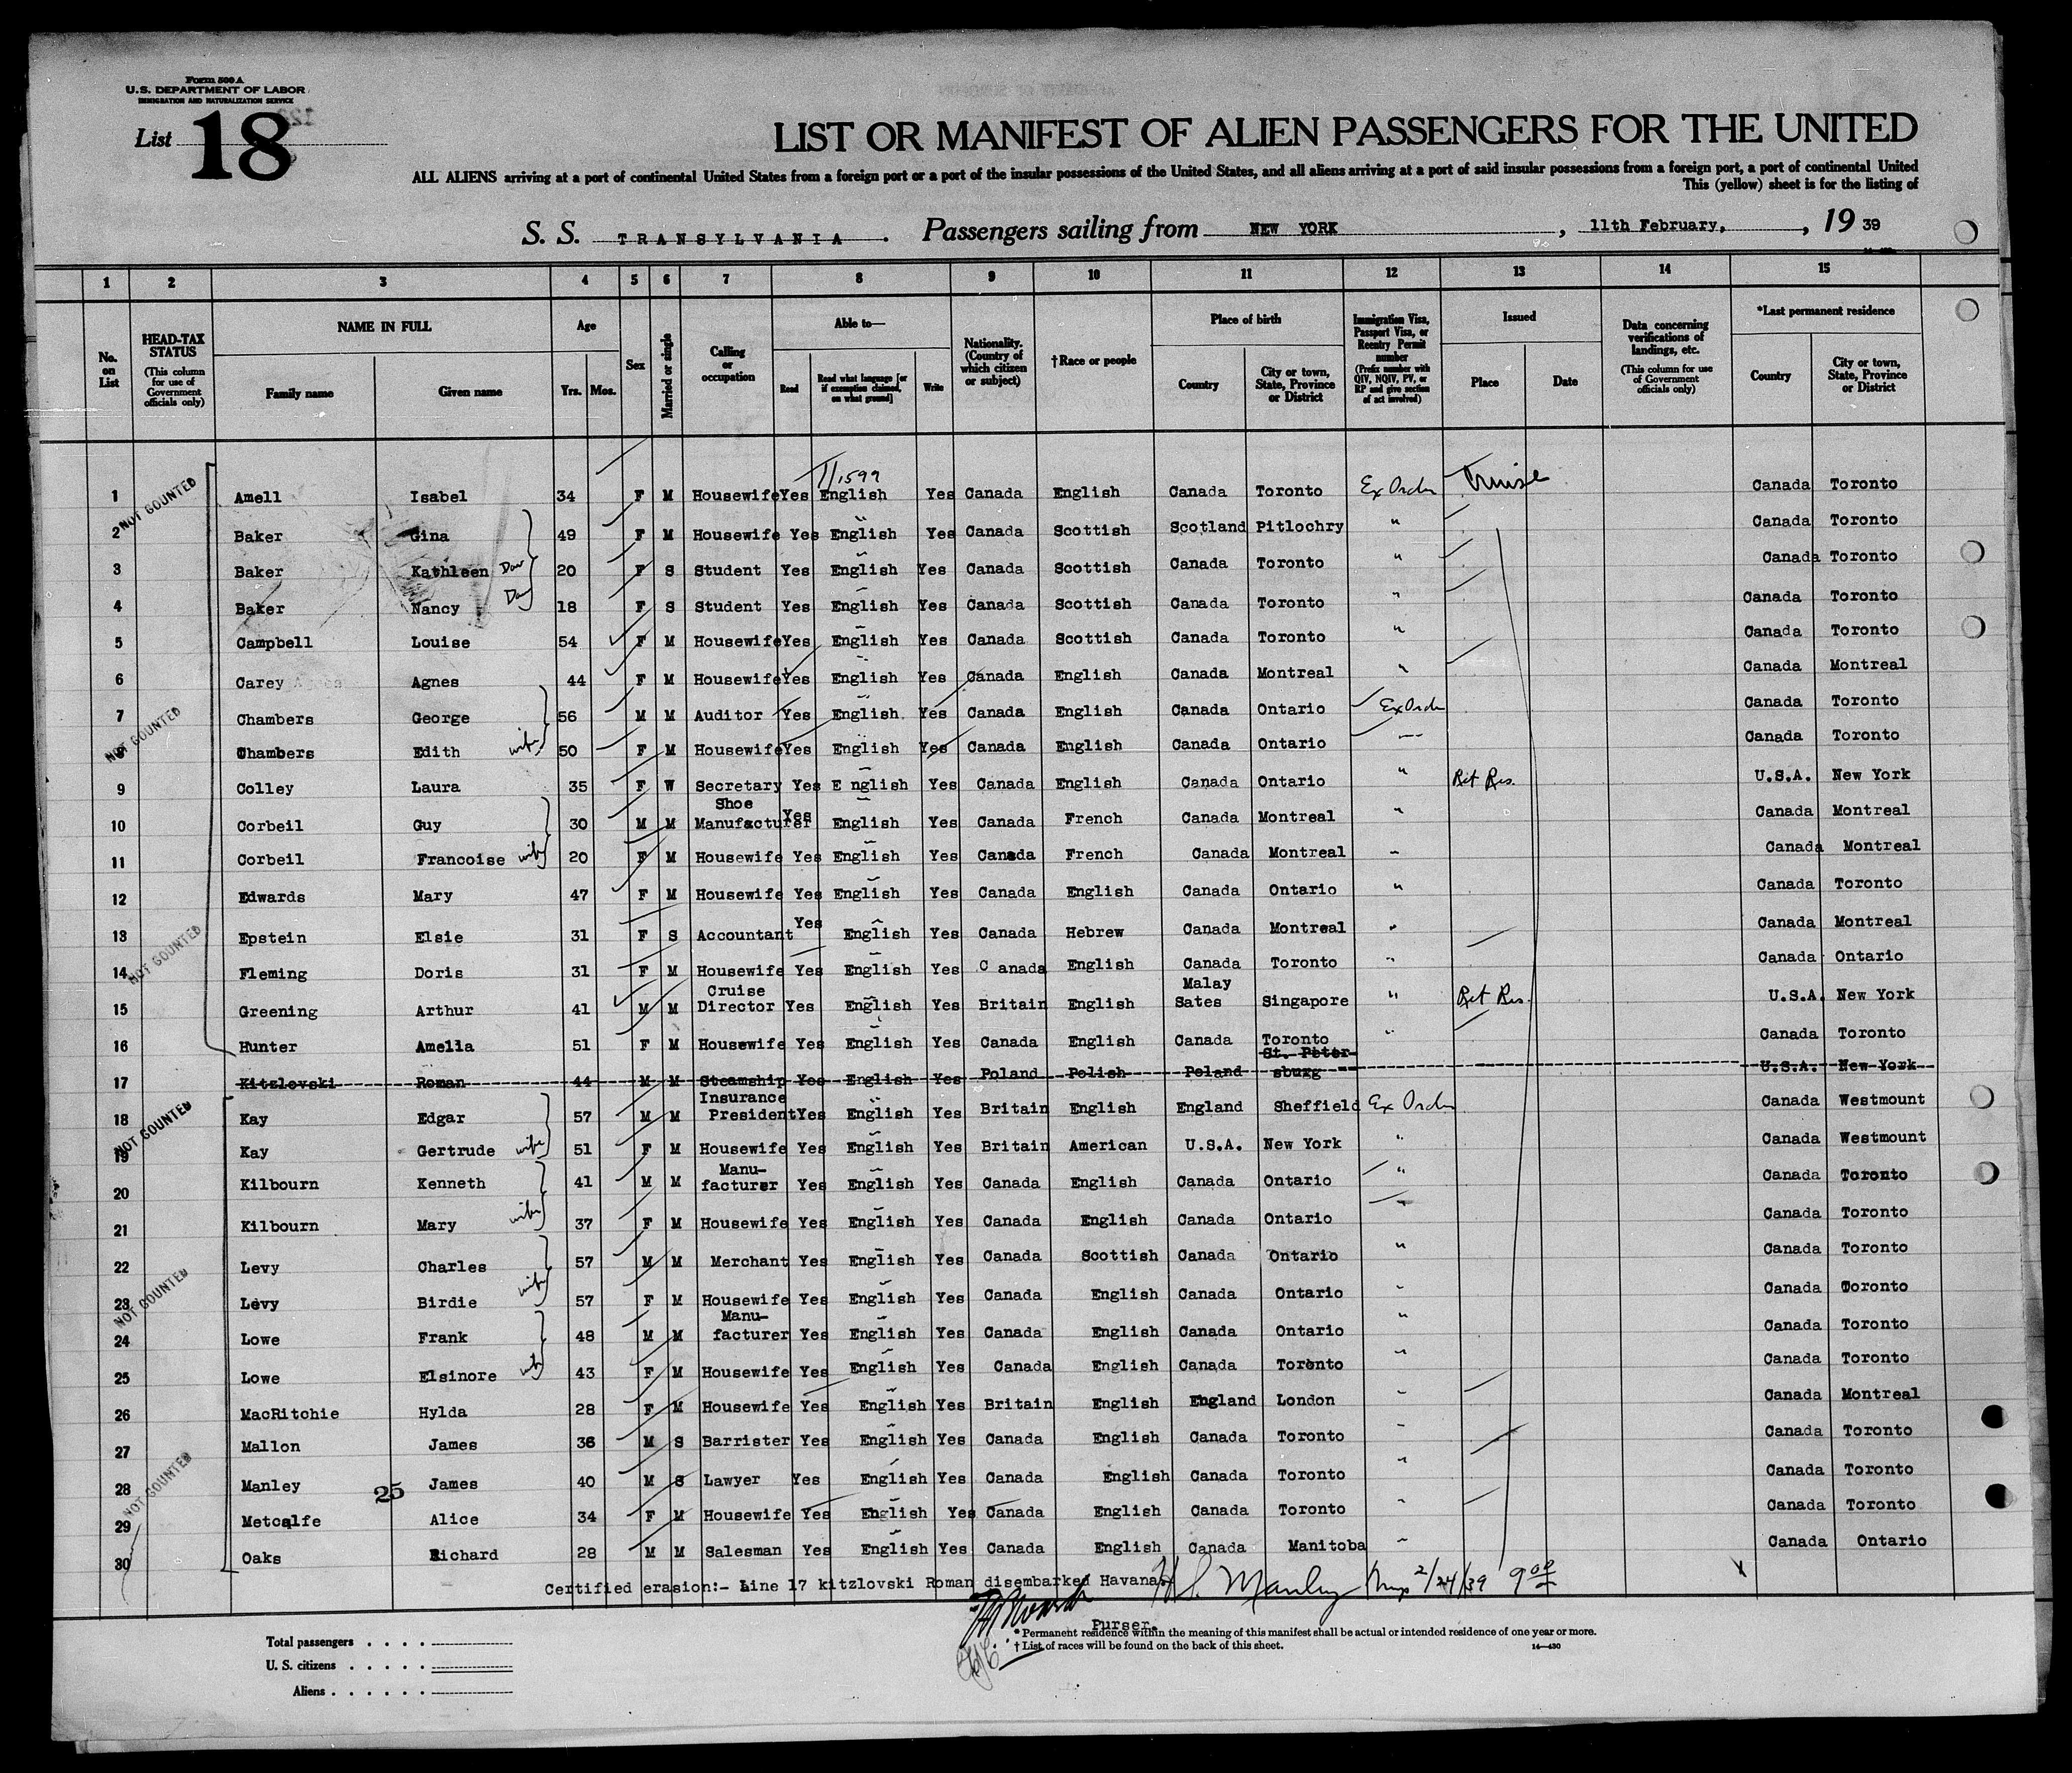 Form 500 A
U.S. DEPARTMENT OF LABOR
IMMIGRATION AND NATURALIZATION SERVICE
List 18
LIST OR MANIFEST OF ALIEN PASSENGERS FOR THE UNITED
ALL ALIENS arriving at a port of continental United States from a foreign port or a port of the insular possessions of the United States, and all aliens arriving at a port of said insular possessions from a foreign port, a port of continental United
This (yellow) sheet is for the listing of
S. S. TRANSYLVANIA. Passengers sailing from NEW YORK, 11th February, , 19 39
1 2 3 4 5 6 7 8 9 10 11 12 13 14 15
No. on List
HEAD-TAX STATUS (This column for use of Government officials only)
NAME IN FULL Family name Given name
Age Yrs. Mos.
Sex
Married or single
Calling or occupation
Able to— Read Read what language [or if exemption claimed, on what ground] Write
Nationality. (Country of which citizen or subject)
†Race or people
Place of birth Country City or town, State, Province or District
Immigration Visa, Passport Visa, or Reentry Permit number (Prefix number with QIV, NQIV, PV, or RP and give section of act involved)
Issued Place Date
Data concerning verifications of landings, etc. (This column for use of Government officials only)
*Last permanent residence Country City or town, State, Province or District
1599
1 NOT COUNTED Amell Isabel 34 F M Housewife Yes English Yes Canada English Canada Toronto Ex Order Cruise Canada Toronto
2 Baker Gina 49 F M Housewife Yes English Yes Canada Scottish Scotland Pitlochry " Canada Toronto
3 Baker Kathleen Dau 20 F S Student Yes English Yes Canada Scottish Canada Toronto " Canada Toronto
4 Baker Nancy Dau 18 F S Student Yes English Yes Canada Scottish Canada Toronto " Canada Toronto
5 Campbell Louise 54 F M Housewife Yes English Yes Canada Scottish Canada Toronto " Canada Toronto
6 Carey Agnes 44 F M Housewife Yes English Yes Canada English Canada Montreal " Canada Montreal
7 NOT COUNTED Chambers George 56 M M Auditor Yes English Yes Canada English Canada Ontario Ex Order Canada Toronto
8 Chambers Edith wife 50 F M Housewife Yes English Yes Canada English Canada Ontario " Canada Toronto
9 Colley Laura 35 F W Secretary Yes E nglish Yes Canada English Canada Ontario " Ret Res. U.S.A. New York
10 Corbeil Guy 30 M M Shoe Manufacturer Yes English Yes Canada French Canada Montreal " Canada Montreal
11 Corbeil Francoise wife 20 F M Housewife Yes English Yes Canada French Canada Montreal " Canada Montreal
12 Edwards Mary 47 F M Housewife Yes English Yes Canada English Canada Ontario " Canada Toronto
13 NOT COUNTED Epstein Elsie 31 F S Accountant Yes English Yes Canada Hebrew Canada Montreal " Canada Montreal
14 Fleming Doris 31 F M Housewife Yes English Yes C anada English Canada Toronto " Canada Ontario
15 Greening Arthur 41 M M Cruise Director Yes English Yes Britain English Malay Sates Singapore " Ret Res. U.S.A. New York
16 Hunter Amelia 51 F M Housewife Yes English Yes Canada English Canada Toronto " Canada Toronto
17 Kitzlovski Roman 44 M M Steamship Yes English Yes Poland Polish Poland St. Petersburg U.S.A. New York
18 NOT COUNTED Kay Edgar 57 M M Insurance President Yes English Yes Britain English England Sheffield Ex Order Canada Westmount
19 Kay Gertrude wife 51 F M Housewife Yes English Yes Britain American U.S.A. New York " Canada Westmount
20 Kilbourn Kenneth 41 M M Manu-facturer Yes English Yes Canada English Canada Ontario " Canada Toronto
21 Kilbourn Mary wife 37 F M Housewife Yes English Yes Canada English Canada Ontario " Canada Toronto
22 Levy Charles 57 M M Merchant Yes English Yes Canada Scottish Canada Ontario " Canada Toronto
23 NOT COUNTED Levy Birdie wife 57 F M Housewife Yes English Yes Canada English Canada Ontario " Canada Toronto
24 Lowe Frank 48 M M Manu-facturer Yes English Yes Canada English Canada Ontario " Canada Toronto
25 Lowe Elsinore wife 43 F M Housewife Yes English Yes Canada English Canada Toronto " Canada Toronto
26 MacRitchie Hylda 28 F M Housewife Yes English Yes Britain English England London " Canada Montreal
27 Mallon James 36 M S Barrister Yes English Yes Canada English Canada Toronto " Canada Toronto
28 NOT COUNTED Manley James 40 M S Lawyer Yes English Yes Canada English Canada Toronto " Canada Toronto
25
29 Metcalfe Alice 34 F M Housewife Yes English Yes Canada English Canada Toronto " Canada Toronto
30 Oaks Richard 28 M M Salesman Yes English Yes Canada English Canada Manitoba " Canada Ontario
Certified erasion:- Line 17 kitzlovski Roman disembarked Havana. H S. Manley Insp 2/24/39 9 00
Purser.
Total passengers
U. S. citizens
Aliens
* Permanent residence within the meaning of this manifest shall be actual or intended residence of one year or more.
† List of races will be found on the back of this sheet.
14—430